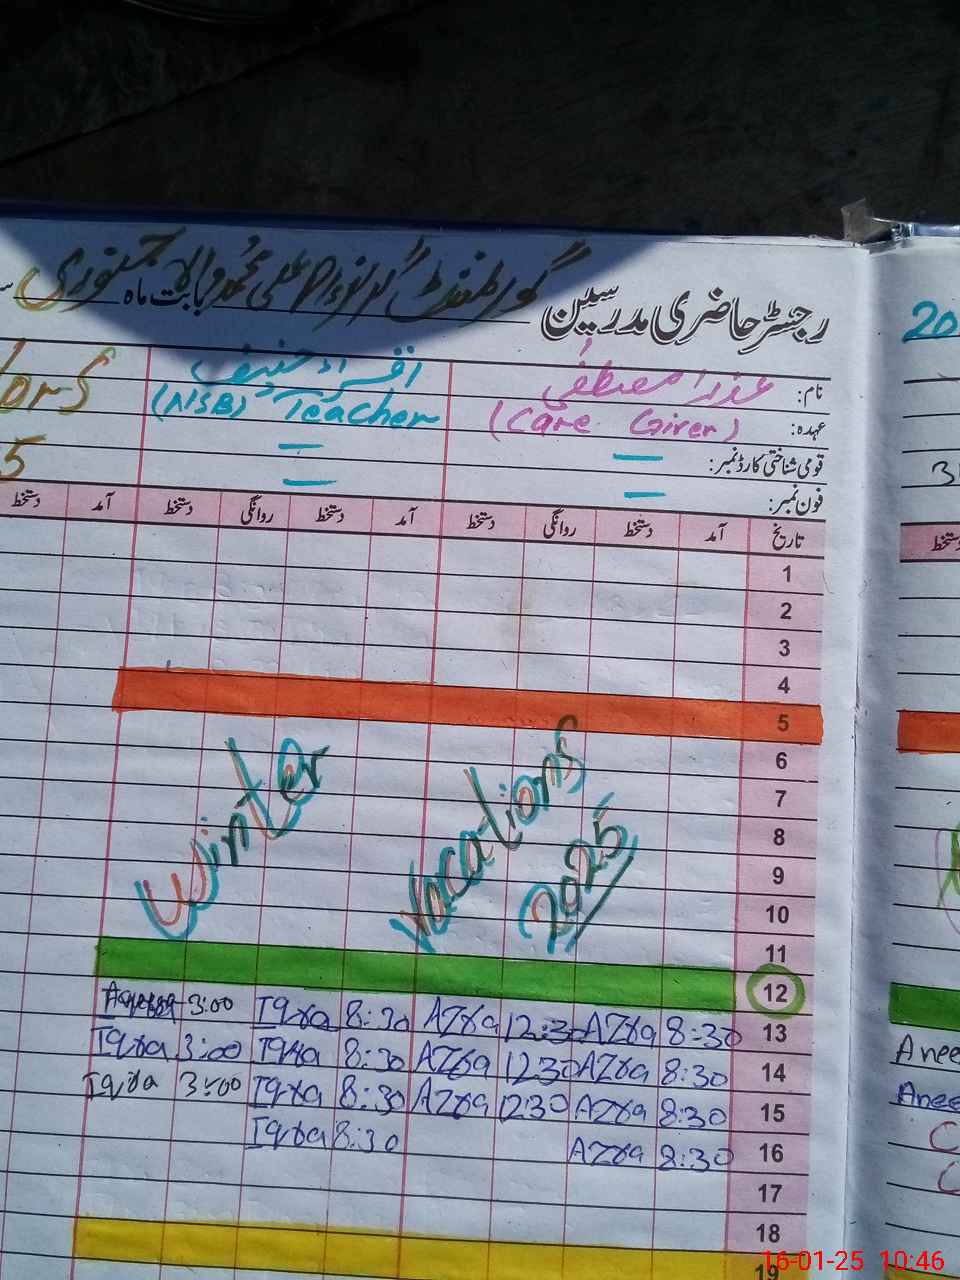 رجسٹر حاضری مدرسین گورنمنٹ گرلز محمد والا بابت ماہ جنوری
20
نام: عذرا مصطفٰی
عہدہ: (Care Giver) (NSB) Teacher
قومی شناختی کارڈ نمبر: —
فون نمبر: —
تاریخ آمد دستخط روانگی دستخط آمد دستخط روانگی دستخط آمد دستخط
1
2
3
4
5
6
7
8
9
10
11
12
Winter Vacations 2025
13 8:30 Azra 12:30 Azra 8:30 Iqra 3:00
14 8:30 Azra 12:30 Azra 8:30 Iqra 3:00 Iqra
15 8:30 Azra 12:30 Azra 8:30 Iqra 3:00 Iqra
16 8:30 Azra 8:30 Iqra
17
18
19
Anee
Anee
16-01-25 10:46